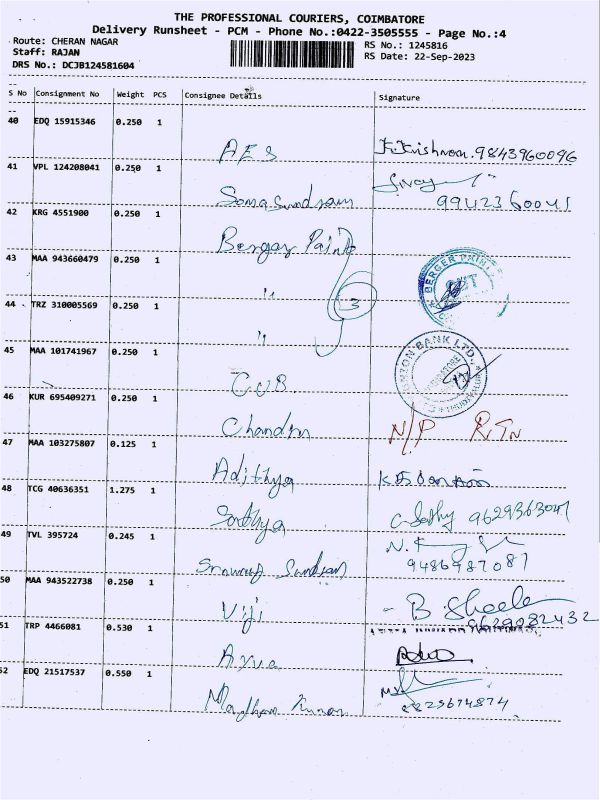 THE PROFESSIONAL COURIERS, COIMBATORE
Delivery Runsheet - PCM - Phone No.:0422-3505555 - Page No.:4
Route: CHERAN NAGAR RS No.: 1245816
Staff: RAJAN RS Date: 22-Sep-2023
DRS No.: DCJB124581604
S No Consignment No Weight PCS Consignee Details Signature
40 EDQ 15915346 0.250 1
AES K.Krishnan.9843960096
41 VPL 124208041 0.250 1
Somasundram 9942360041
42 KRG 4551900 0.250 1
Berger Paint
43 MAA 943660479 0.250 1
" 3 BERGER PAINT
44 TRZ 310005569 0.250 1
"
45 MAA 101741967 0.250 1
CUB UNION BANK LTD.
46 KUR 695409271 0.250 1
Chandra N/P RTn
47 MAA 103275807 0.125 1
Adithya
48 TCG 40636351 1.275 1
Sathya C. Sathy 9629363041
49 TVL 395724 0.245 1
Sundram N. 9486987087
50 MAA 943522738 0.250 1
Viji B. Sheela 9629082432
51 TRP 4466081 0.530 1
52 EDQ 21517537 0.550 1
Madhan Kumar 8825674874